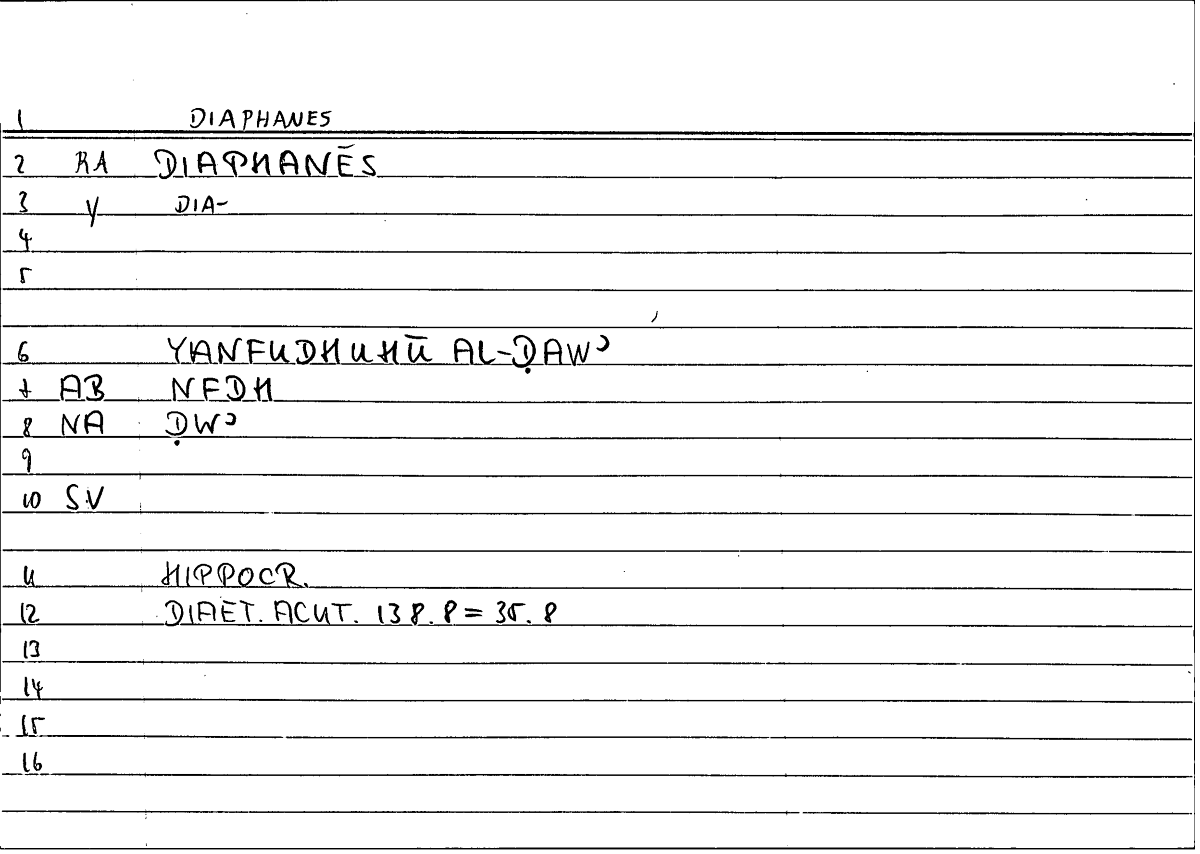 1 DIAPHANES
2 RA DIAPHANĒS
3 V DIA-
4
5
6 YANFUDHUHŪ AL-ḌAWʾ
7 AB NFDH
8 NA ḌWʾ
9
10 SV
11 HIPPOCR.
12 DIAET. ACUT. 138.8 = 35.8
13
14
15
16